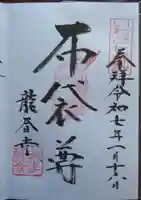 奉拝令和七年一月十六日
布袋尊
龍昌寺